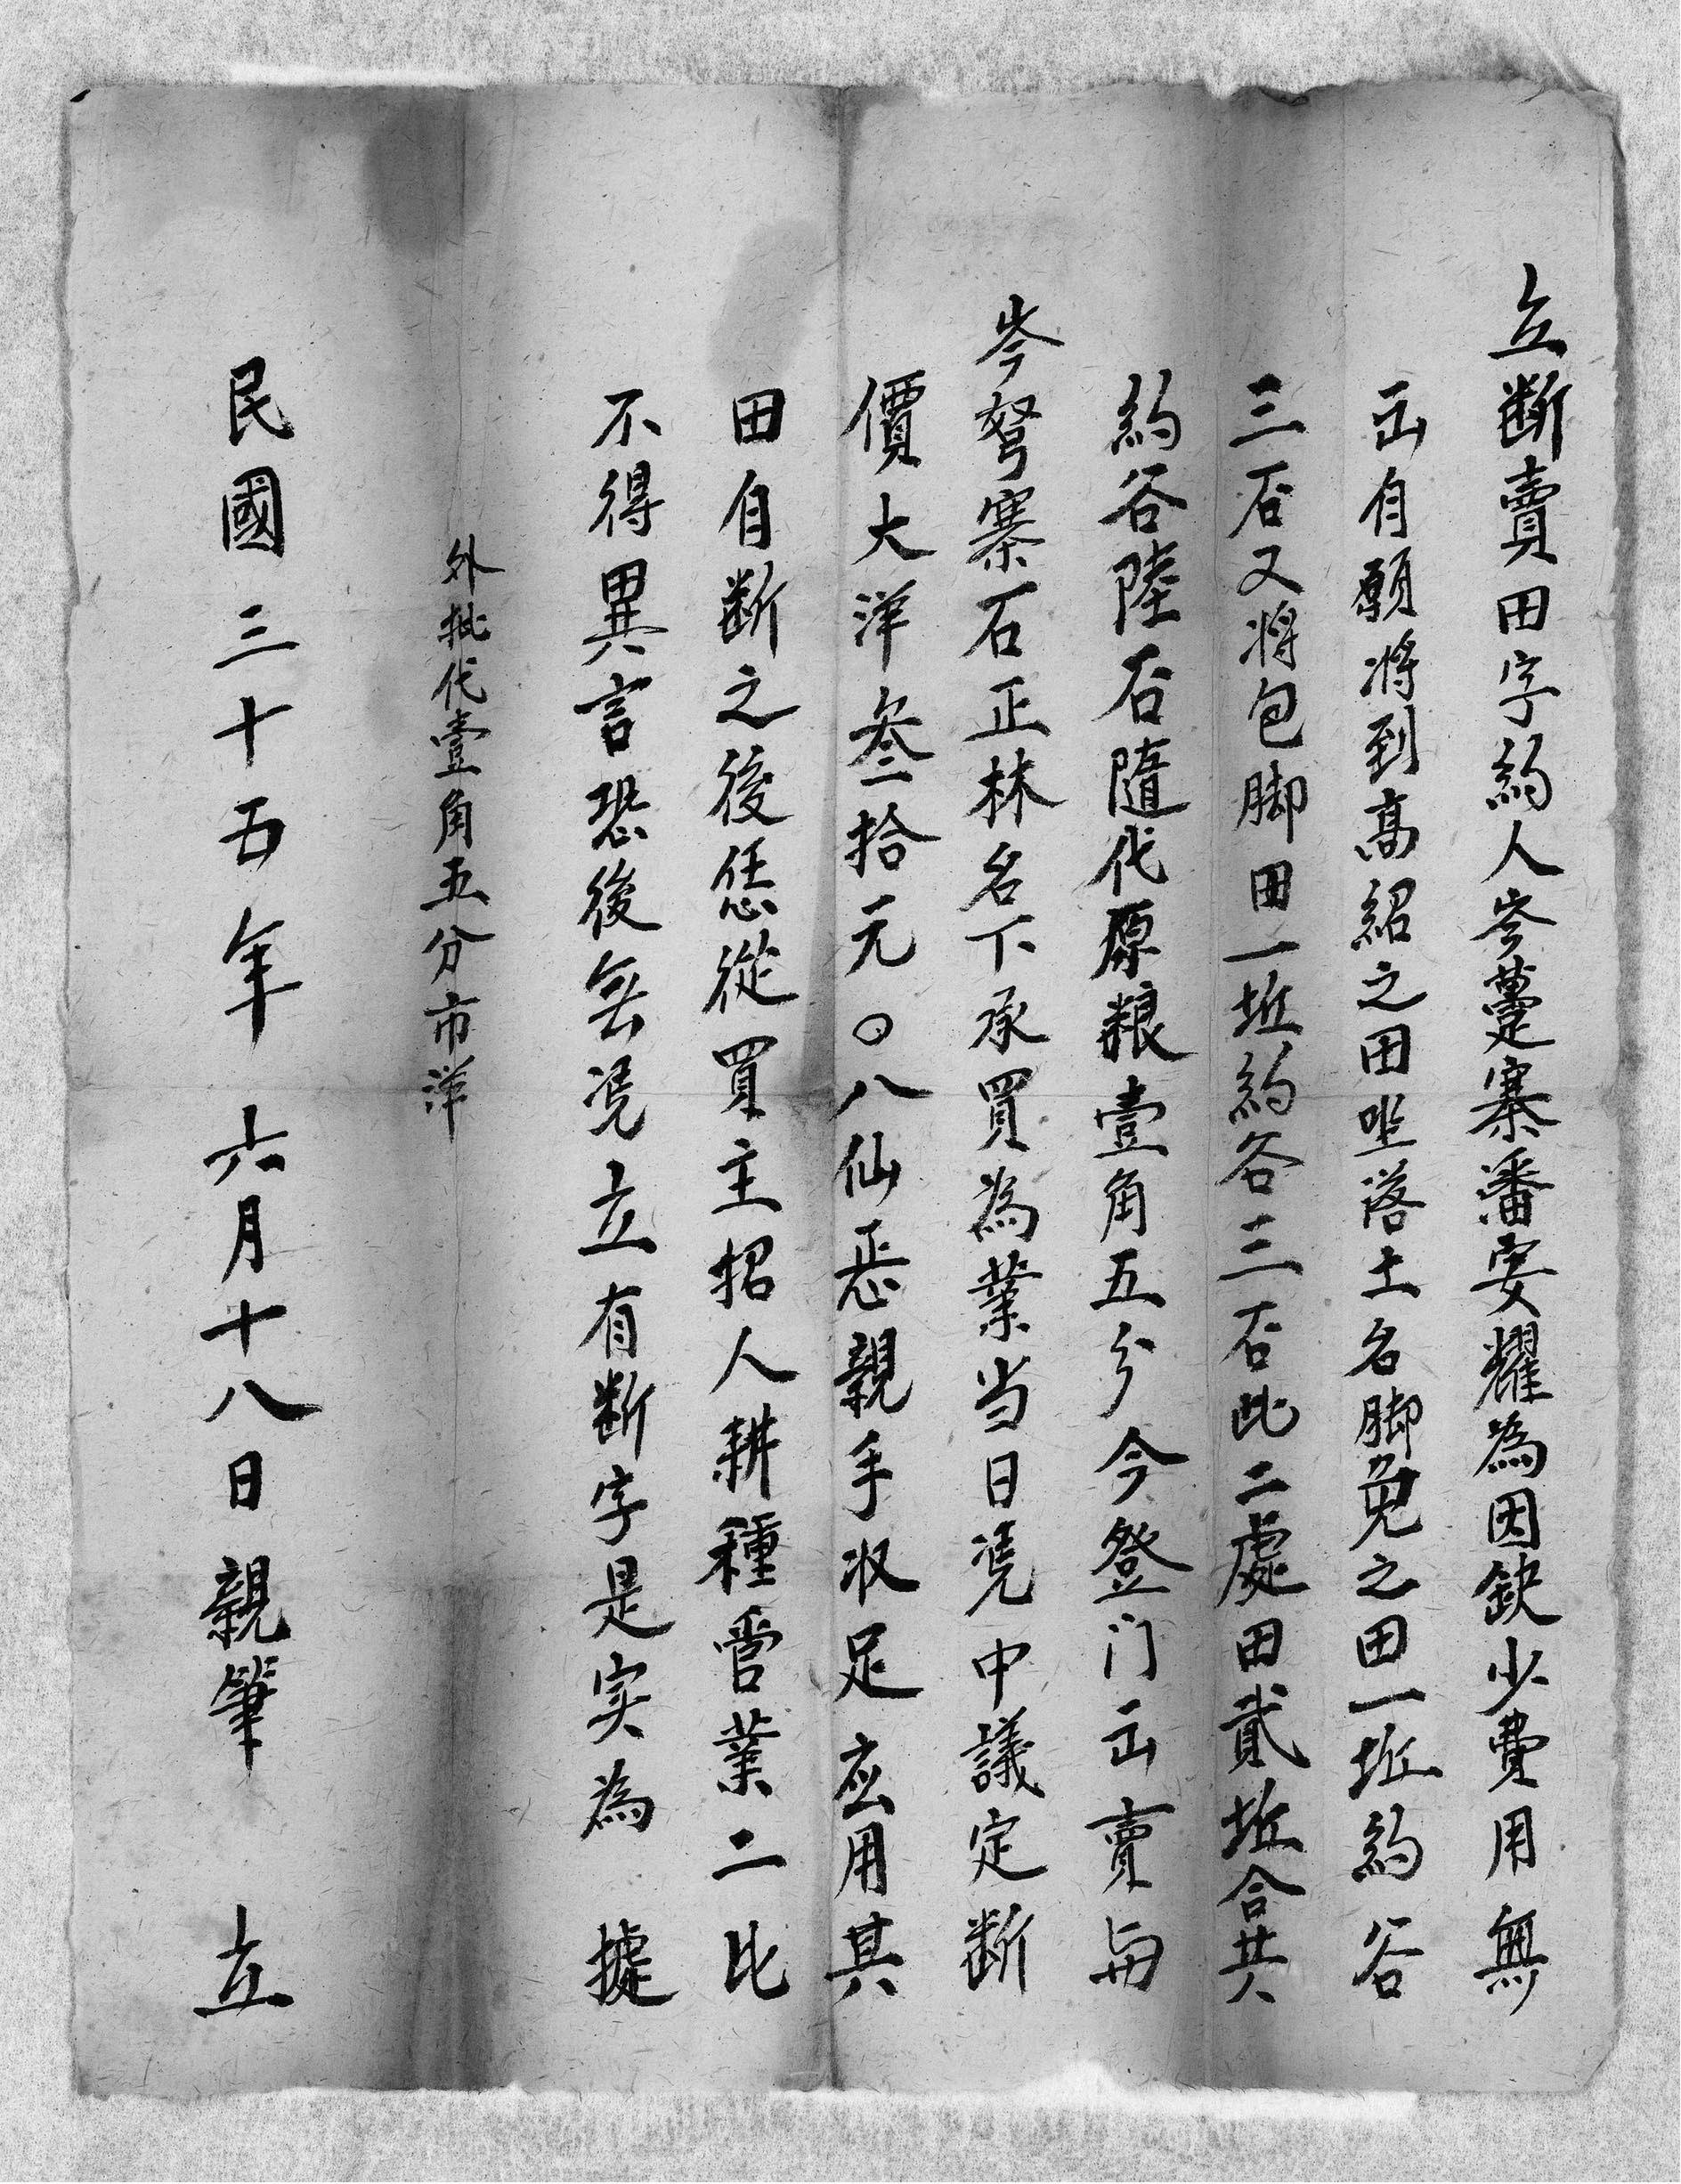 立断賣田字約人岑薹寨潘安耀為因缺少費用無
出自願将到高紹之田坐落土名脚免之田一坵約谷
三石又将包脚田一坵約谷三石此二處田貳坵合共
約谷陸石隨代原粮壹角五分今登门出賣與
岑弩寨石正林名下承買為業当日凴中議定断
價大洋叁拾元○八仙悉親手收足应用其
田自断之後恁從買主招人耕種管業二比
不得異言恐後無凴立有断字是实為據
外批代壹角五分市洋
民國三十五年六月十八日親筆立